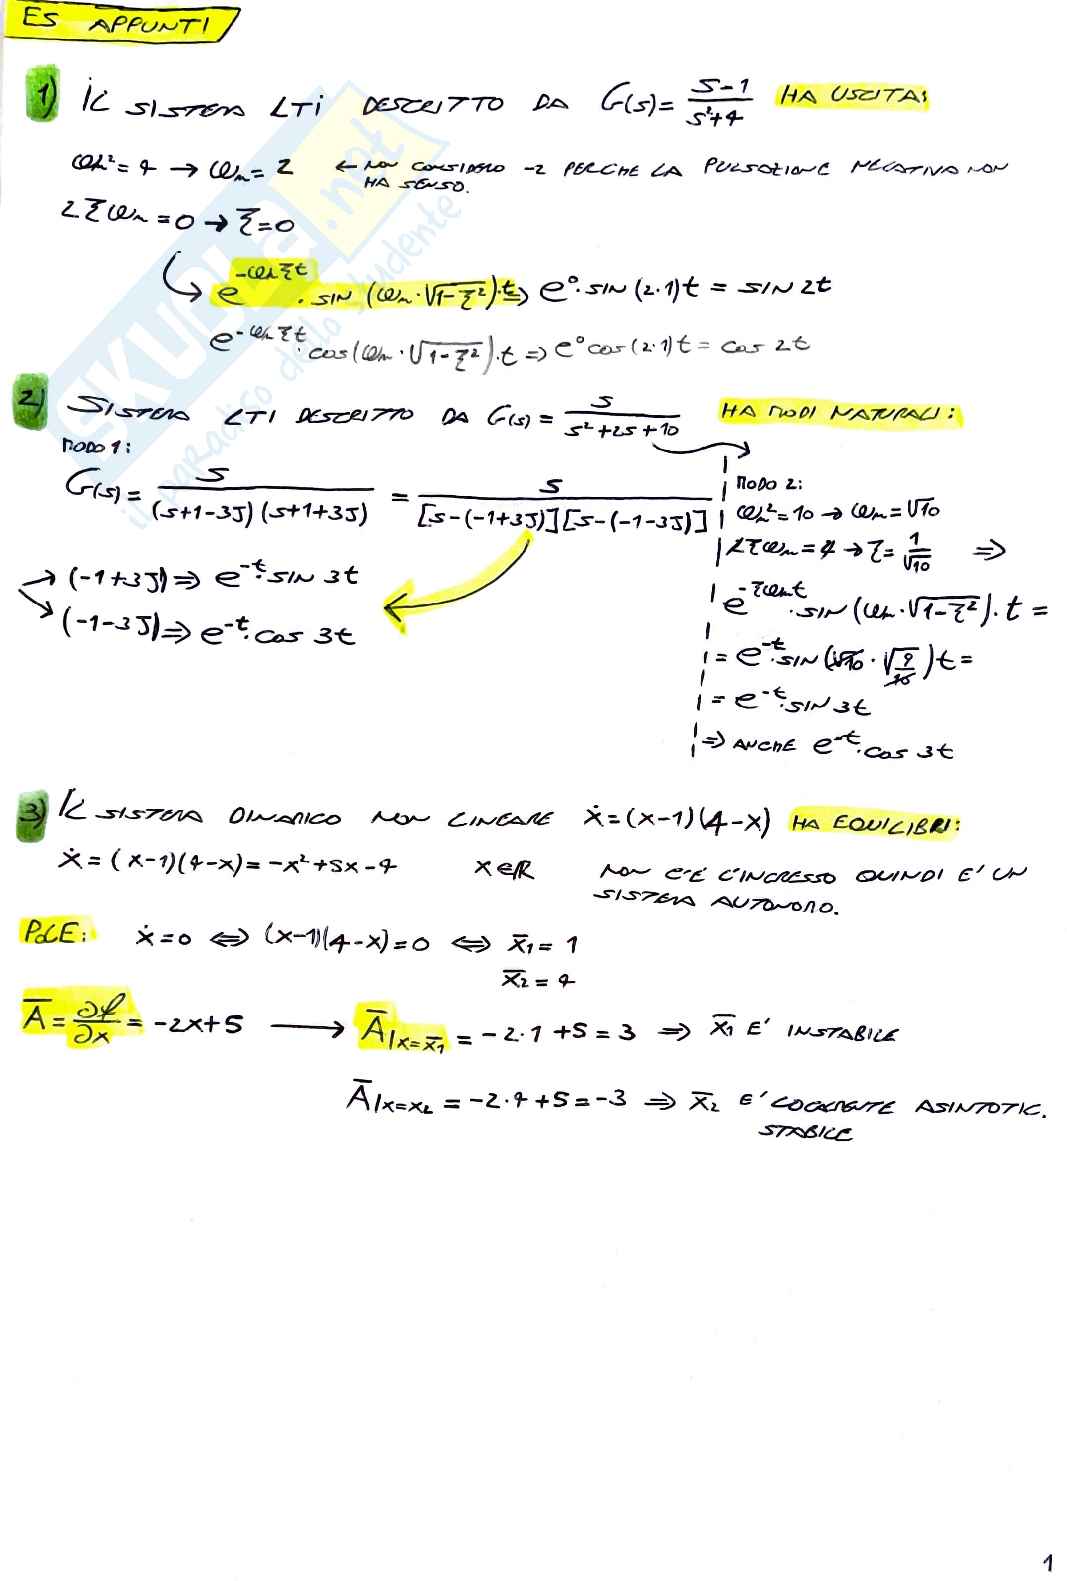 ES APPUNTI
1) IL SISTEMA LTI DESCRITTO DA G(s)= (s-1)/(s²+4) HA USCITA:
ωn²=4 → ωn=2 ← NON CONSIDERO -2 PERCHE LA PULSAZIONE NEGATIVA NON HA SENSO.
2ξωn=0 → ξ=0
e^(-ωnξt) · SIN (ωn·√(1-ξ²))·t ⇒ e⁰·SIN(2·1)t = SIN 2t
e^(-ωnξt) · cos(ωn·√(1-ξ²))·t ⇒ e⁰cos(2·1)t = cos 2t
2) SISTEMA LTI DESCRITTO DA G(s)= s/(s²+2s+10) HA MODI NATURALI:
MODO 1:
G(s)= s/((s+1-3J)(s+1+3J)) = s/([s-(-1+3J)][s-(-1-3J)])
→ (-1+3J) ⇒ e^(-t)·SIN 3t
→ (-1-3J) ⇒ e^(-t)·cos 3t
MODO 2:
ωn²=10 → ωn=√10
2ξωn=2 → ξ= 1/√10 ⇒
e^(-ξωnt)·SIN(ωn·√(1-ξ²))·t =
= e^(-t)·SIN(√10·√(9/10))t =
= e^(-t)·SIN 3t
⇒ ANCHE e^(-t)·cos 3t
3) IL SISTEMA DINAMICO NON LINEARE ẋ=(x-1)(4-x) HA EQUILIBRI:
ẋ=(x-1)(4-x)=-x²+5x-4 x∈R NON C'È L'INGRESSO QUINDI E' UN
SISTEMA AUTONOMO.
PdE: ẋ=0 ⇔ (x-1)(4-x)=0 ⇔ x̄₁= 1
x̄₂= 4
Ā= ∂f/∂x = -2x+5 → Ā|x=x̄₁ = -2·1+5=3 ⇒ x̄₁ E' INSTABILE
Ā|x=x₂ = -2·4+5=-3 ⇒ x̄₂ E' LOCALMENTE ASINTOTIC.
STABILE
1
SKUOLA.net
il paradiso dello studente